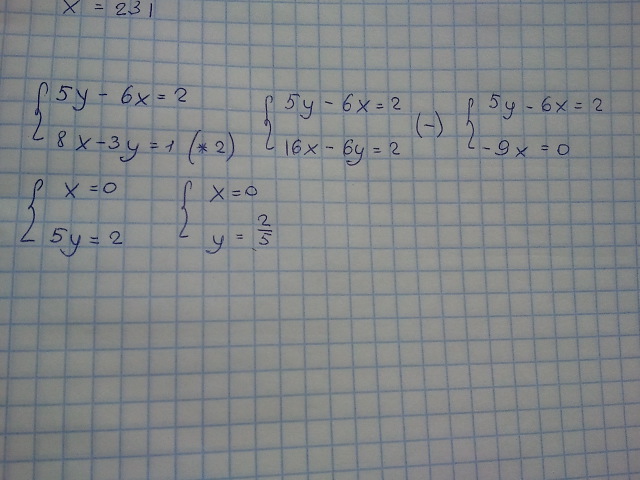 x = 231
5y - 6x = 2
8x - 3y = 1 (* 2)
5y - 6x = 2
16x - 6y = 2
(-)
5y - 6x = 2
-9x = 0
x = 0
5y = 2
x = 0
y = 2/5